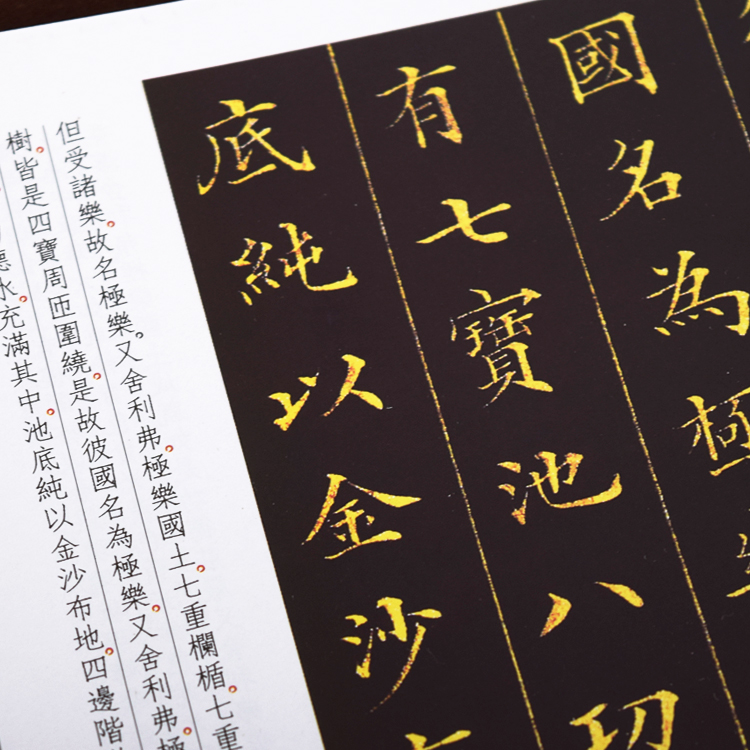 國名為極
有七寶池八功
底純以金沙
但受諸樂。故名極樂。又舍利弗。極樂國土。七重欄楯。七重
樹。皆是四寶周匝圍繞。是故彼國名為極樂。又舍利弗。極
德水。充滿其中。池底純以金沙布地。四邊階